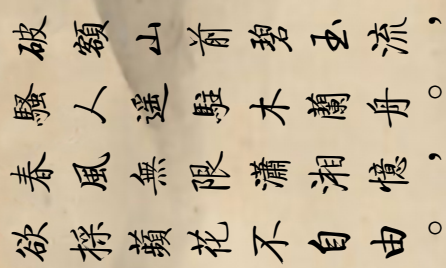 破額山前碧玉流，
騷人遥駐木蘭舟。
春風無限瀟湘憶，
欲採蘋花不自由。